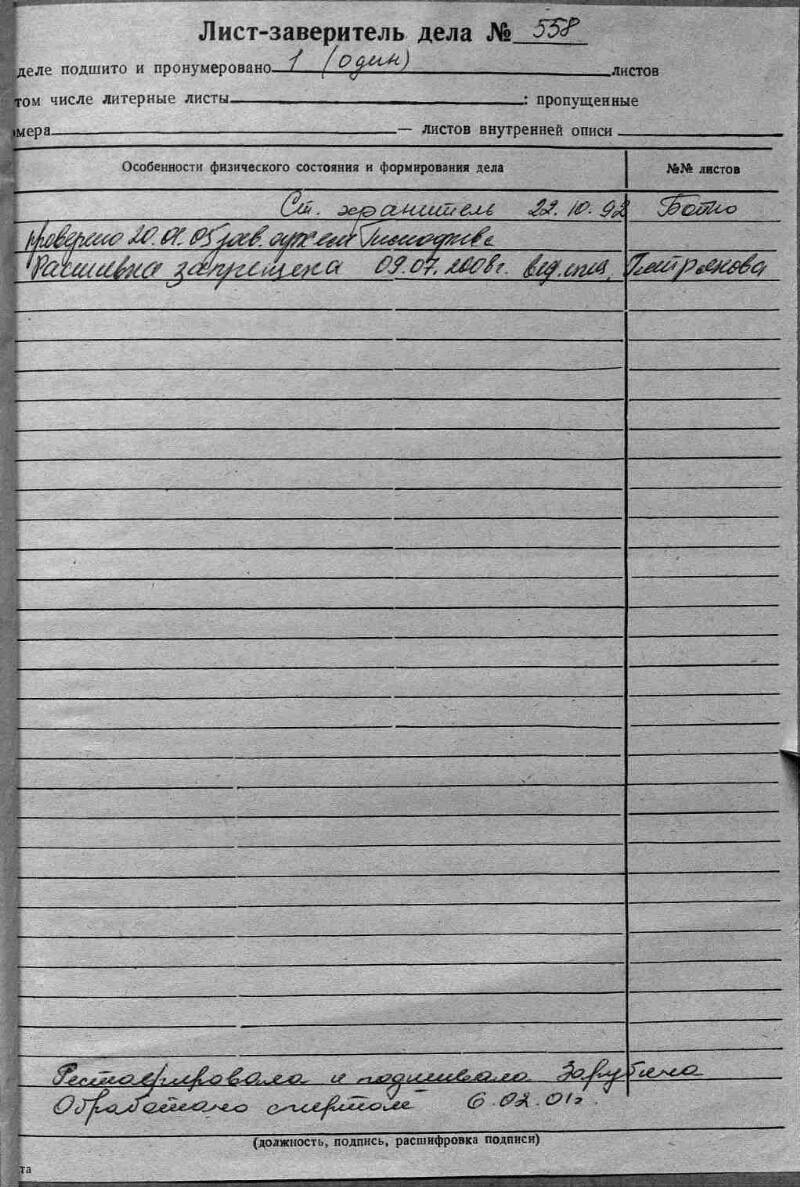 Лист-заверитель дела № 558
деле подшито и пронумеровано 1 (один) листов
том числе литерные листы : пропущенные
мера — листов внутренней описи
Особенности физического состояния и формирования дела №№ листов
Ст. хранитель 22.10.92
проверено 20.01.05 зав.
Расшивка запрещена 09.07.2008г.
Реставрировала и подшивала Зарубина
Обработано спиртом 6.02.01г.
(должность, подпись, расшифровка подписи)
та